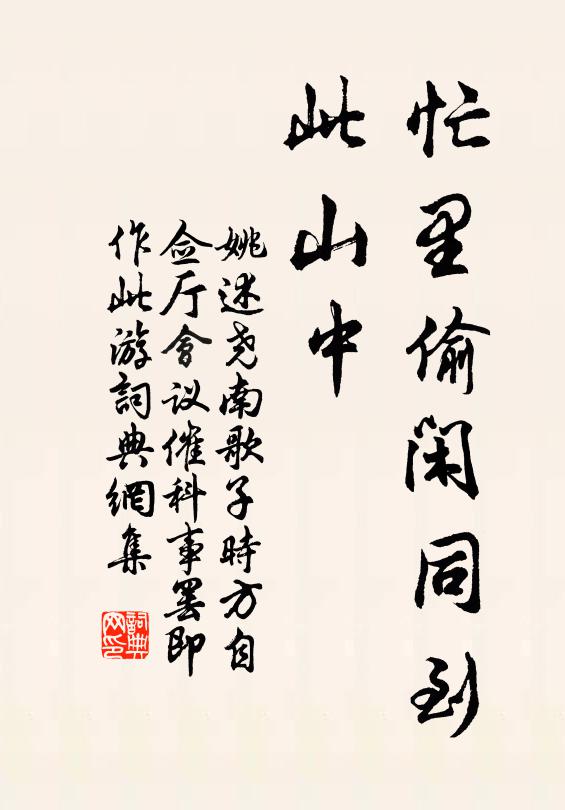 忙里偷閑同到
此山中
姚述尧南歌子時方自
佥厅會议催科事罢即
作此游詞典網集
詞典
网印